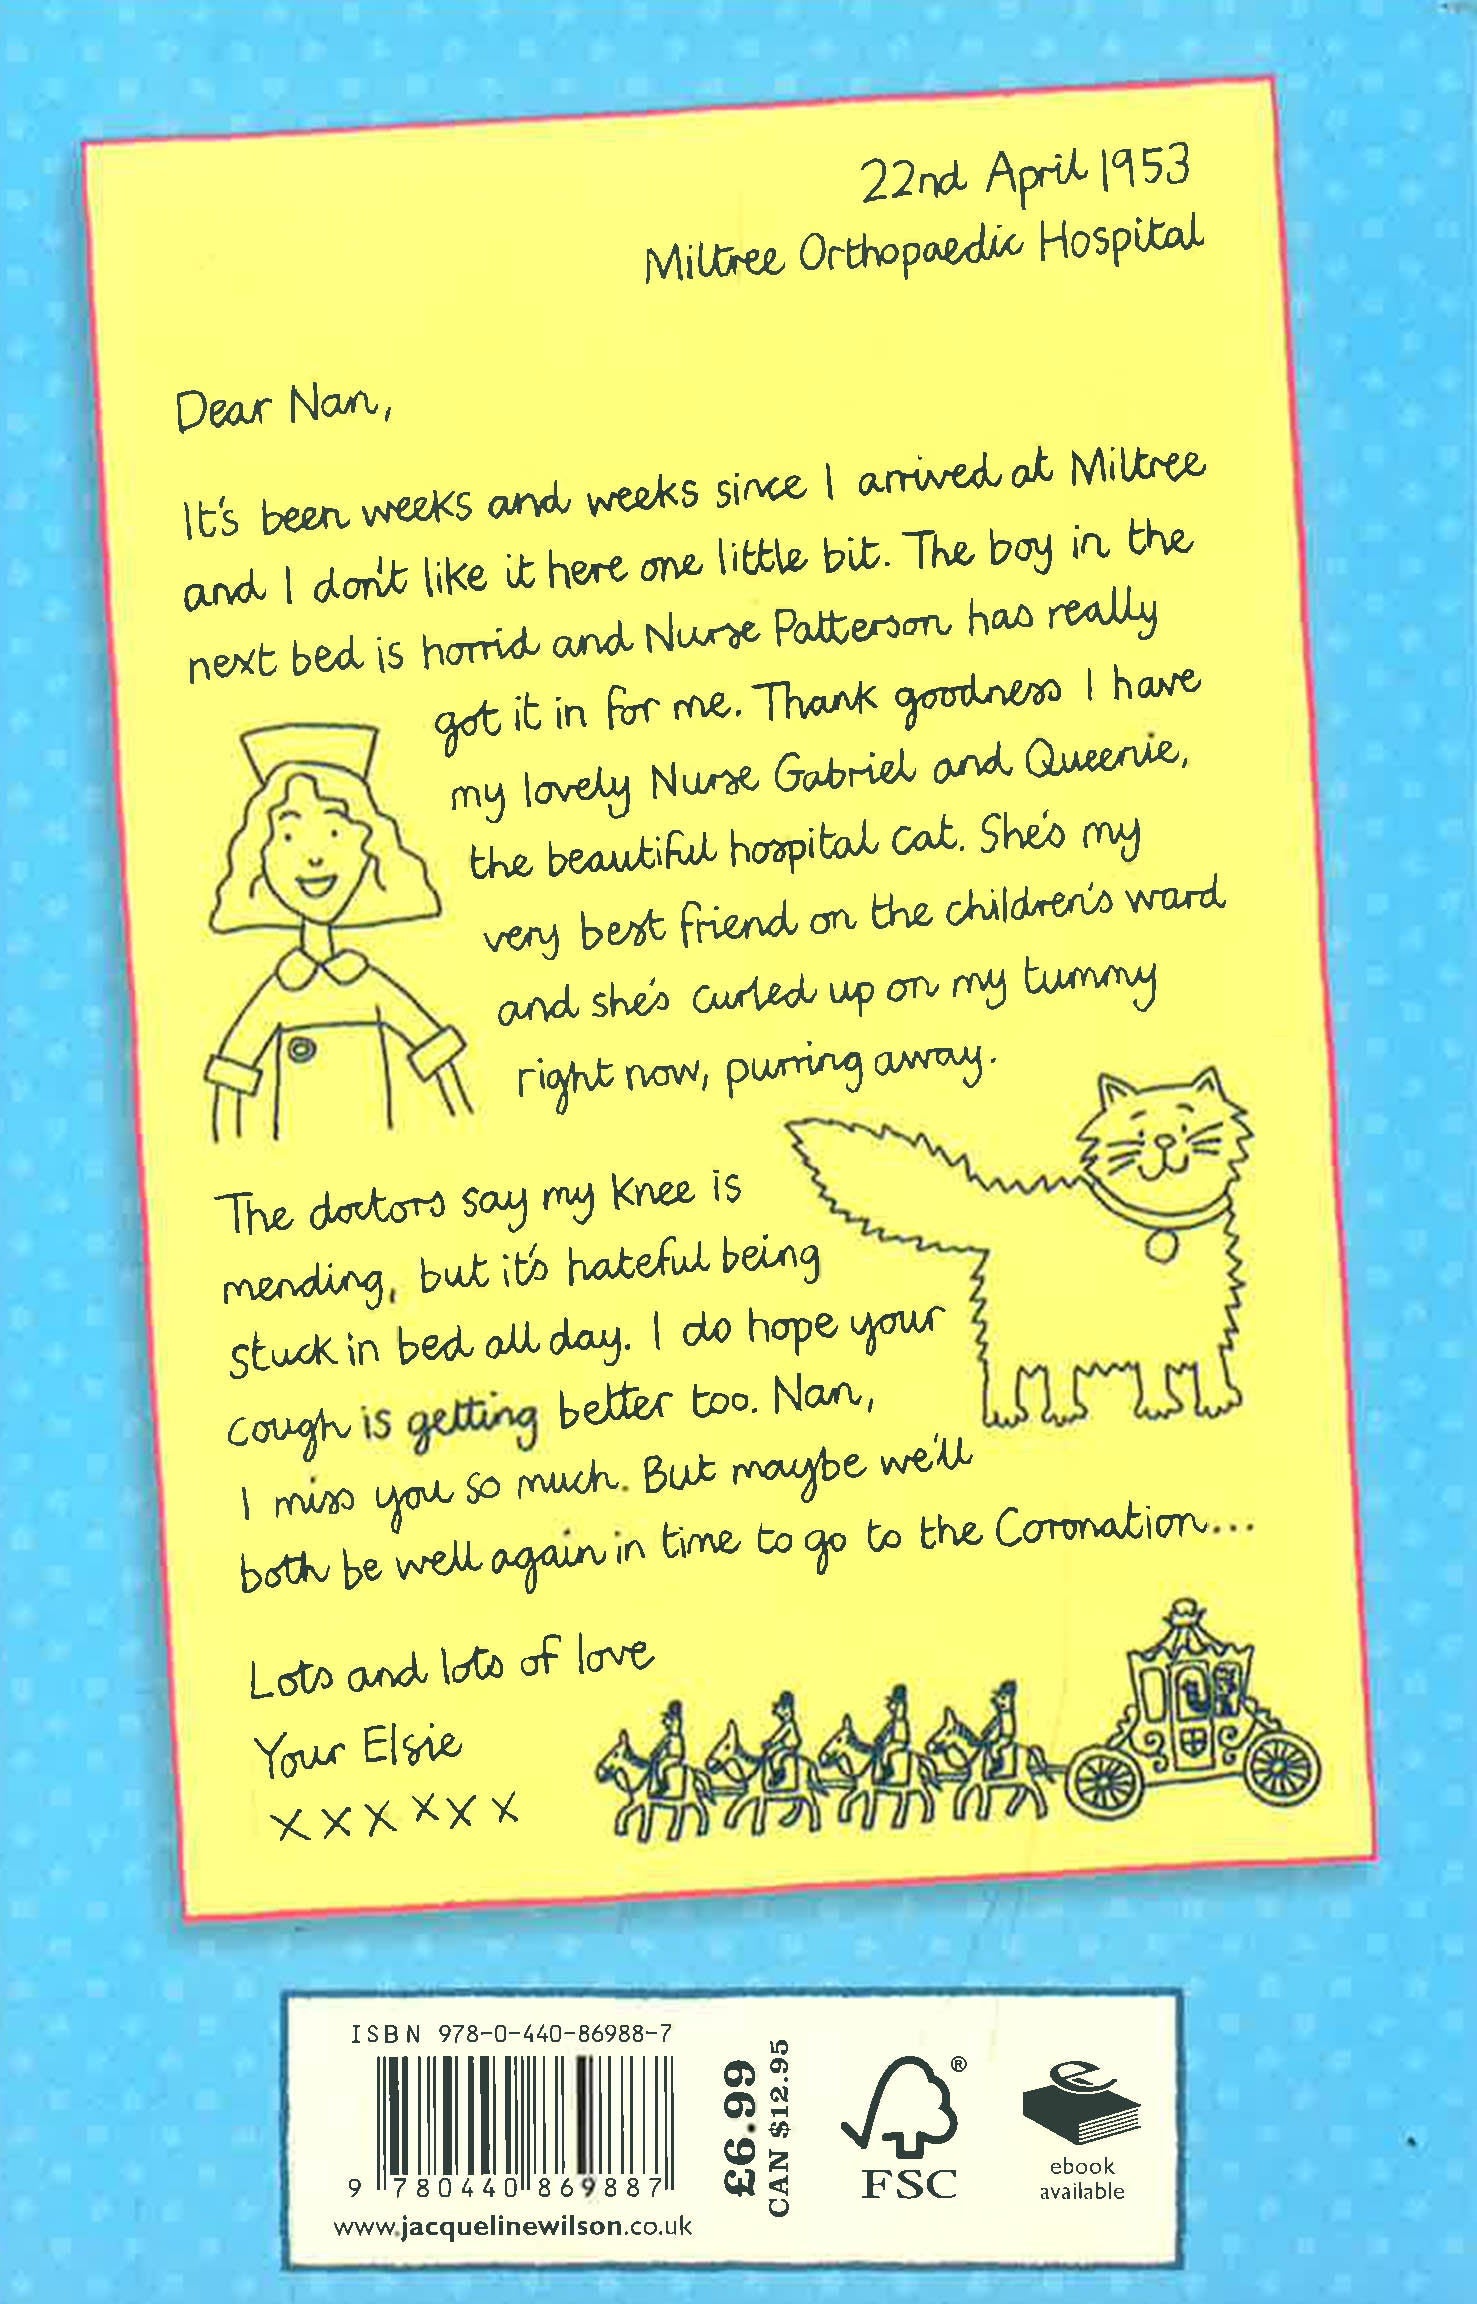 22nd April 1953
Miltree Orthopaedic Hospital
Dear Nan,
It's been weeks and weeks since I arrived at Miltree
and I don't like it here one little bit. The boy in the
next bed is horrid and Nurse Patterson has really
got it in for me. Thank goodness I have
my lovely Nurse Gabriel and Queenie,
the beautiful hospital cat. She's my
very best friend on the children's ward
and she's curled up on my tummy
right now, purring away.
The doctors say my knee is
mending, but it's hateful being
stuck in bed all day. I do hope your
cough is getting better too. Nan,
I miss you so much. But maybe we'll
both be well again in time to go to the Coronation...
Lots and lots of love
Your Elsie
x x x x x x
ISBN 978-0-440-86988-7
9 780440 869887
www.jacquelinewilson.co.uk
£6.99
CAN $12.95
®
FSC
ebook
available